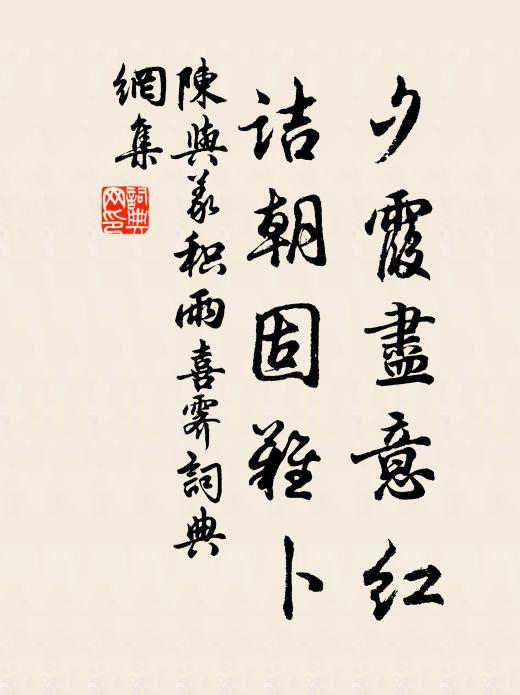 夕霞盡意紅
詰朝固難卜
陳與義積雨喜霽詞典
網集
詞典
网印